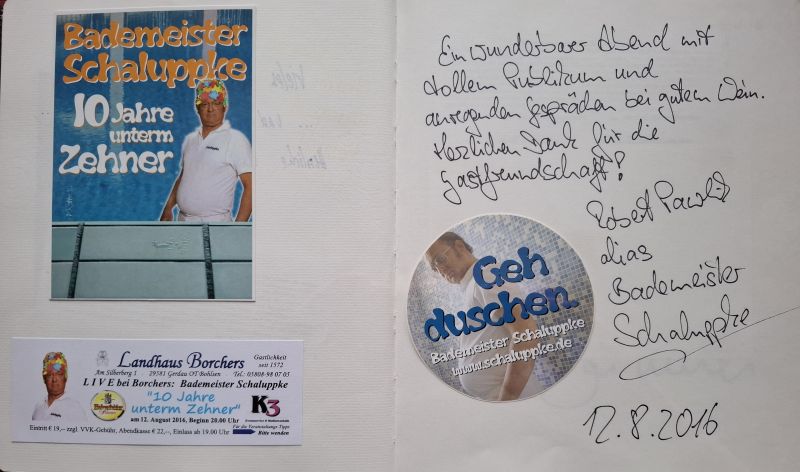 Bademeister
Schaluppke
10 Jahre
unterm
Zehner
Landhaus Borchers
Gastlichkeit
seit 1572
Am Silberberg 1 29581 Gerdau OT-Bohlsen Tel.: 05808-98 07 05
LIVE bei Borchers: Bademeister Schaluppke
"10 Jahre
unterm Zehner"
K3
am 12. August 2016, Beginn 20.00 Uhr
Für die Veranstaltungs-Tipps
Eintritt € 19,-- zzgl. VVK-Gebühr, Abendkasse € 22,--, Einlass ab 19.00 Uhr
Bitte wenden
Ein wunderbarer Abend mit
tollem Publikum und
anregenden Gesprächen bei gutem Wein.
Herzlichen Dank für die
Gastfreundschaft!
Robert
alias
Bademeister
Schaluppke
12.8.2016
Geh
duschen.
Bademeister Schaluppke
www.schaluppke.de